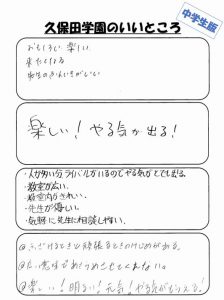 中学生版
久保田学園のいいところ
おもしろい 楽しい
来たくなる
先生のふんいきがいい
楽しい！やる気が出る！
・人が多い分ライバルがいるのでやる気がとても出る。
・教室が広い。
・教室内がきれい。
・先生が優しい。
・気軽に先生に相談しやすい。
@ふざけるときと頑張るときのけじめがある。
@いい意味であきらめさせてくれない。
@楽しい！明るい！元気！やる気がもらえる！